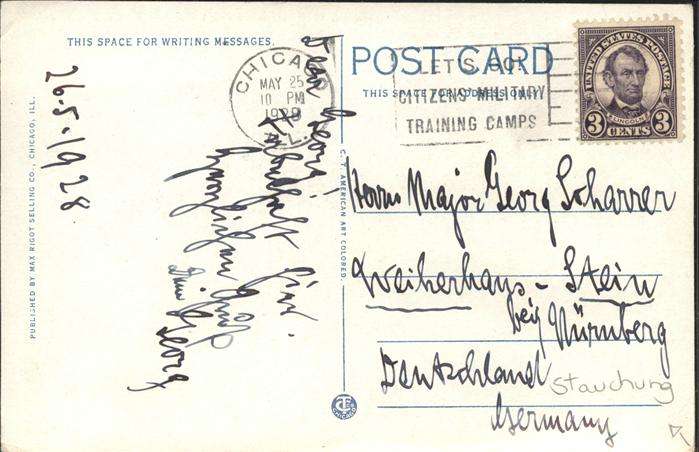 THIS SPACE FOR WRITING MESSAGES.
POST CARD
THIS SPACE FOR ADDRESS ONLY
CHICAGO
MAY 25
10 PM
1928
ILL.
LET'S GO!
CITIZENS MILITARY
TRAINING CAMPS
UNITED STATES POSTAGE
LINCOLN
3 CENTS 3
26.5.1928
Georg!
Georg
Herrn Major Georg Scharrer
Weiherhaus - Stein
bei Nürnberg
Deutschland
Stauchung
Germany
C. T. AMERICAN ART COLORED.
PUBLISHED BY MAX RIGOT SELLING CO., CHICAGO, ILL.
CHICAGO